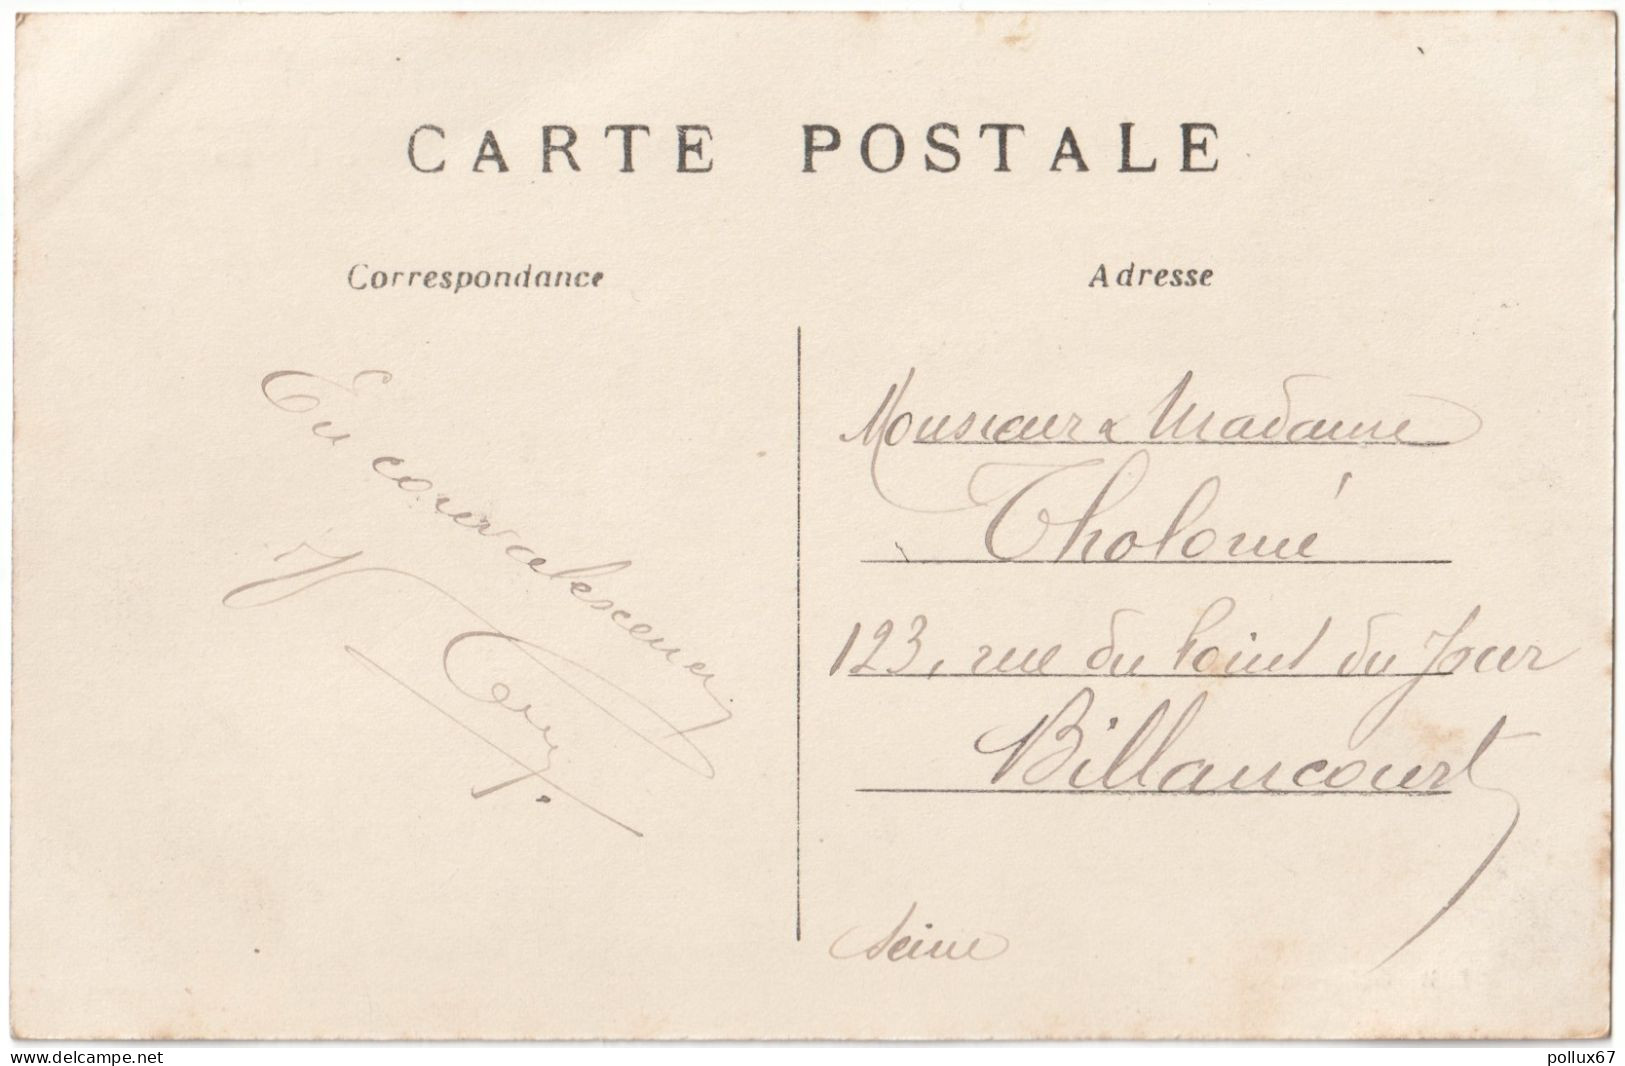 CARTE POSTALE
Correspondance
Adresse
En convalescence
Monsieur & Madame
Tholomé
123, rue du Point du Jour
Billancourt
Seine
www.delcampe.net
pollux67